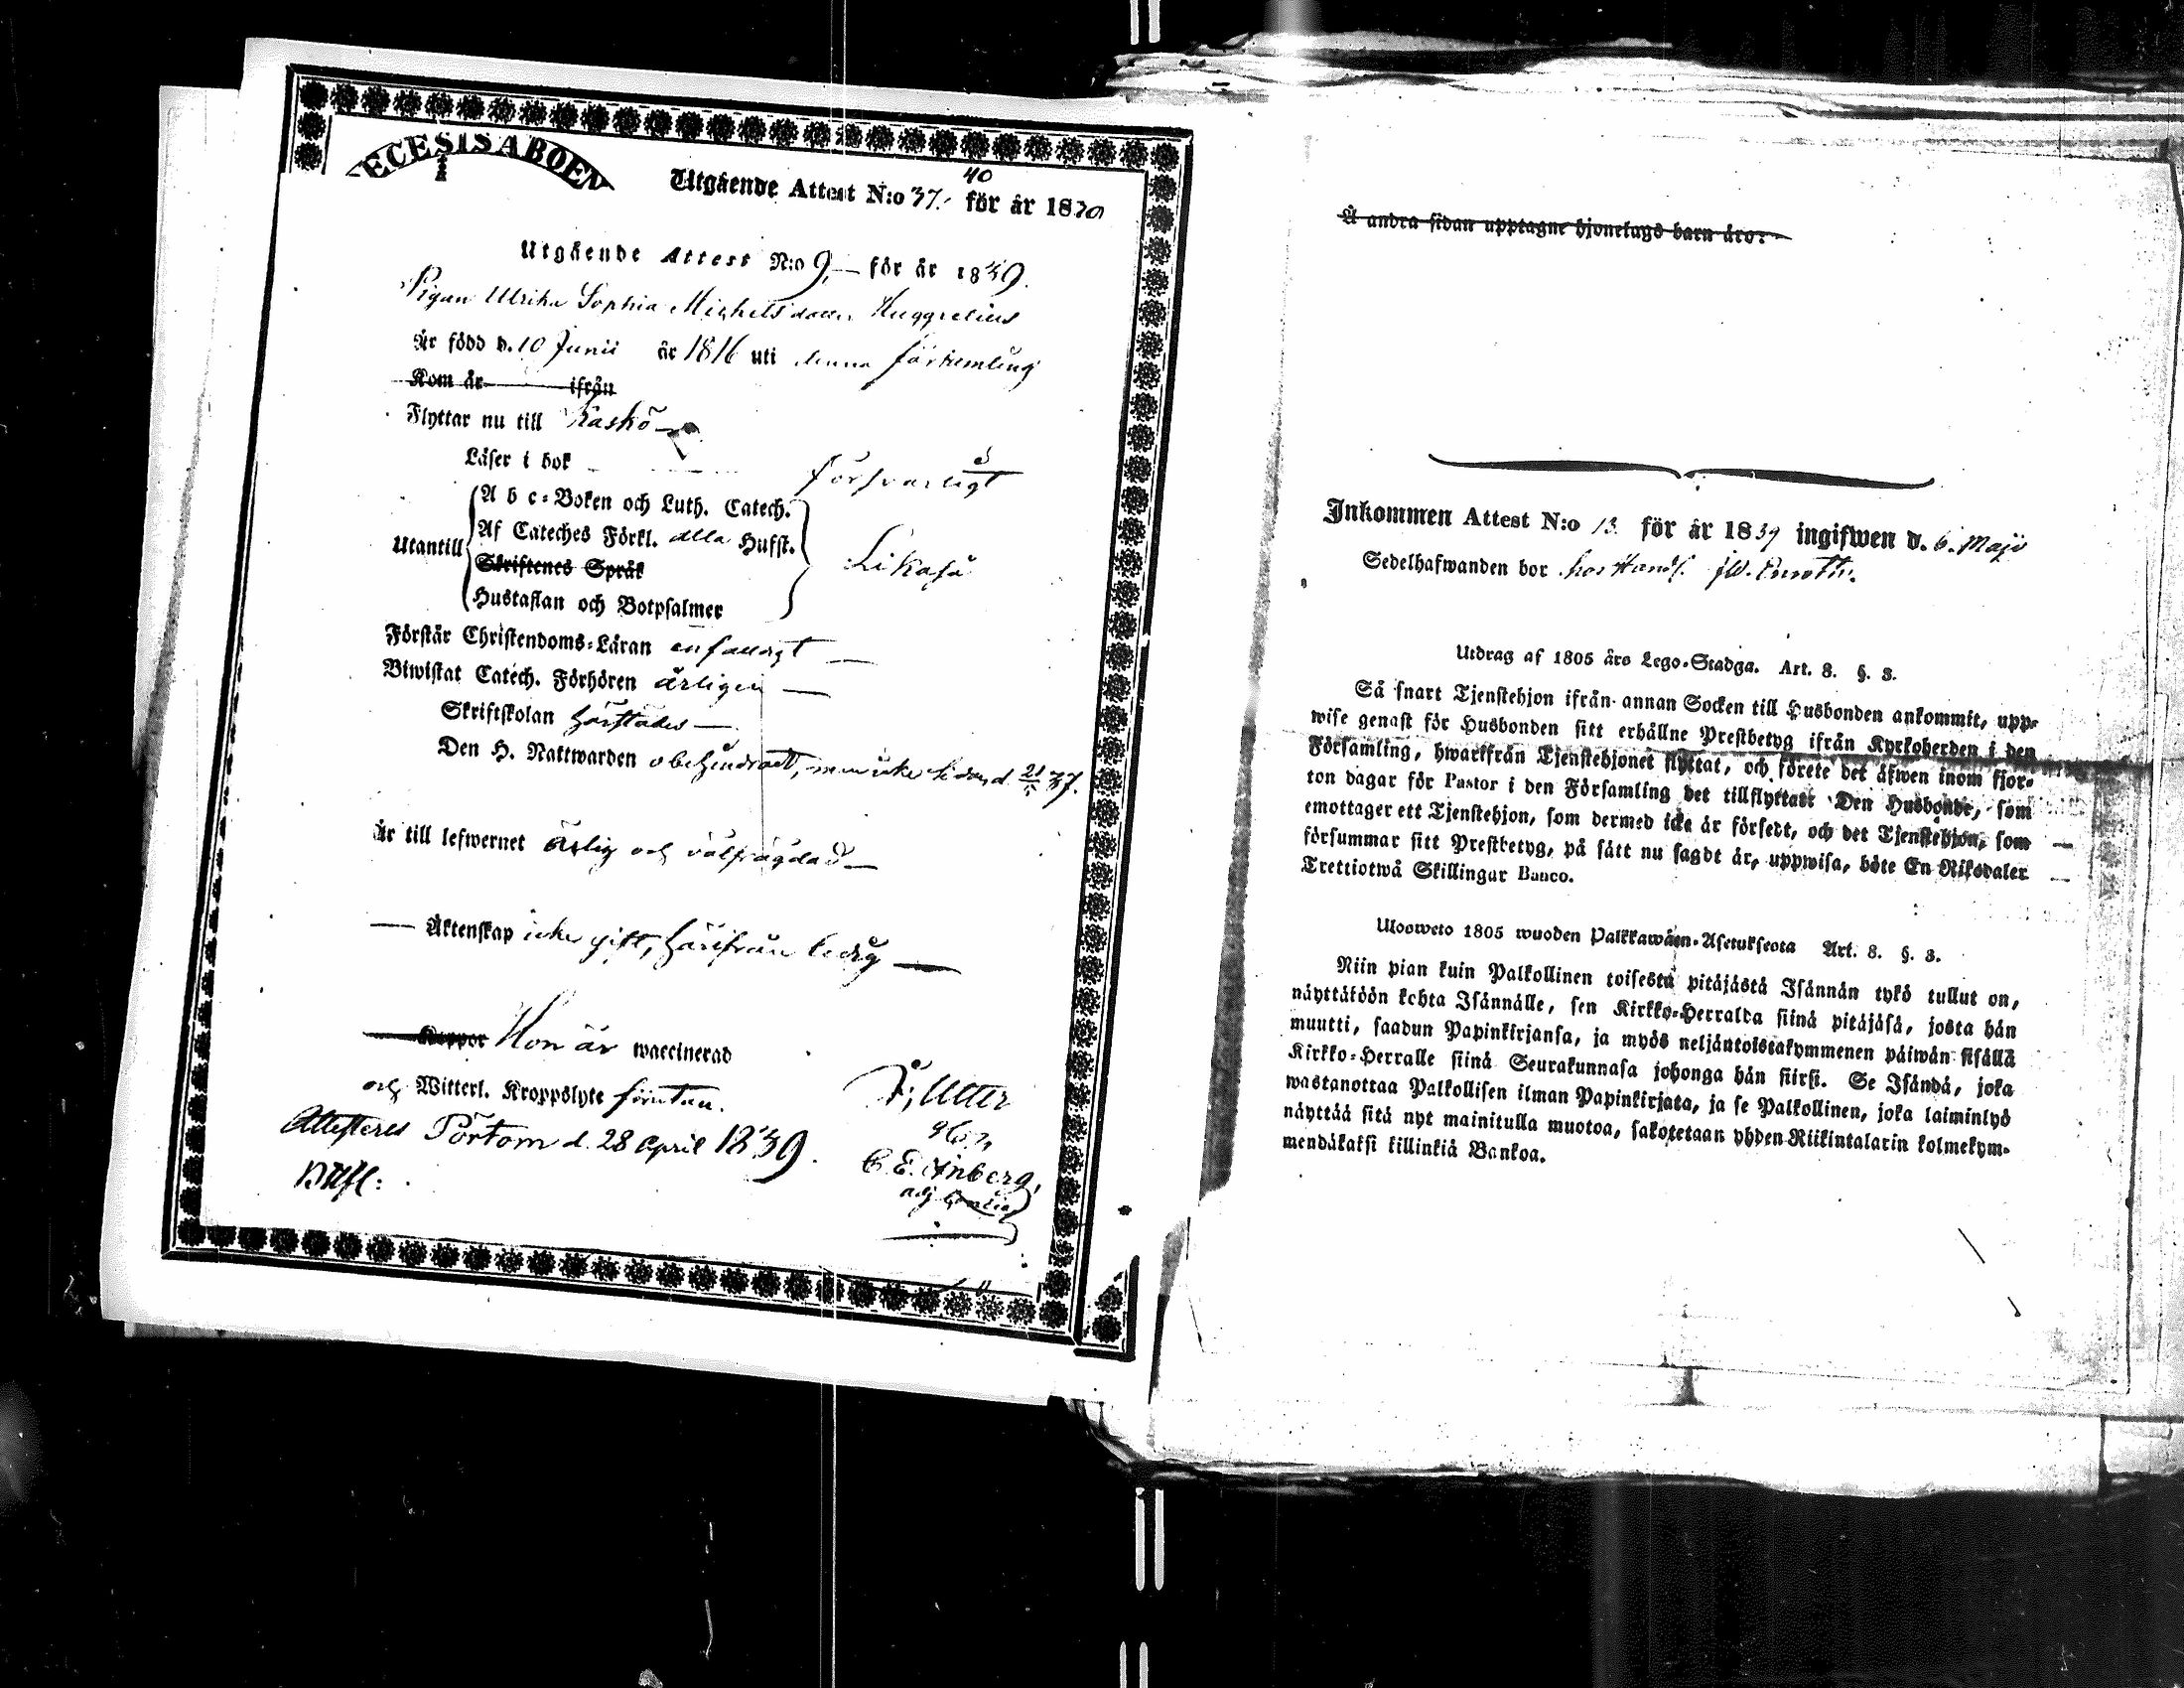 ECESIS ABOEN
Utgående Attest N:o 37. för år 1839
40
Utgående Attest N:o 9, för år 1839.
Pigan Ulrika Sophia Michelsdotter Huggrelius
Är född d. 10 Junii år 1816 uti denna församling
Kom år ifrån
Flyttar nu till Kaskö
Läser i bok försvarligt
A b c-Boken och Luth. Catech.
Af Cateches Förkl. alla Hufst.
Utantill Likaså
Skriftenes Språk
Hustaflan och Botpsalmer
Förstår Christendoms-Läran enfaldigt
Biwistat Catech. Förhören årligen
Skriftskolan härstädes
Den H. Nattwarden obehindradt, men icke sedan d. 37.
Är till lefwernet ärlig och välfrägdad
Äktenskap icke gift, härifrån ledig
Koppor Hon är waccinerad
och Witterl. Kroppslyte förutan.
Attesteras Pörtom d. 28 April 1839.
Utter
C. E.
adj.
Å andra sidan upptagne hjonelags barn äro:
Inkommen Attest N:o 13. för år 1839 ingifwen d. 6. Maji
Sedelhafwanden bor hos Handl.
Utdrag af 1805 års Lego-Stadga. Art. 8. §. 3.
Så snart Tjenstehjon ifrån annan Socken till Husbonden ankommit, upp-
wise genast för Husbonden sitt erhållne Prestbetyg ifrån Kyrkoherden i den
Församling, hwarifrån Tjenstehjonet flyttat, och förete det äfwen inom fjor-
ton dagar för Pastor i den Församling det tillflyttat. Den Husbonde, som
emottager ett Tjenstehjon, som dermed icke är försedt, och det Tjenstehjon, som
försummar sitt Prestbetyg, på sätt nu sagdt är, uppwisa, böte En Riksdaler
Trettiotwå Skillingar Banco.
Ulooweto 1805 wuoden Palkkawäen-Asetuksesta Art. 8. §. 3.
Niin pian kuin Palkollinen toisesta pitäjästä Isännän tykö tullut on,
näyttäköön kohta Isännälle, sen Kirkko-Herralta siinä pitäjäsä, josta hän
muutti, saadun Papinkirjansa, ja myös neljäntoistakymmenen päiwän sisällä
Kirkko-Herralle siinä Seurakunnasa johonga hän siirsi. Se Isändä, joka
wastanottaa Palkollisen ilman Papinkirjata, ja se Palkollinen, joka laiminlyö
näyttää sitä nyt mainitulla muotoa, sakotetaan yhden Riikintalarin kolmekym-
mendäkaksi killinkiä Bankoa.